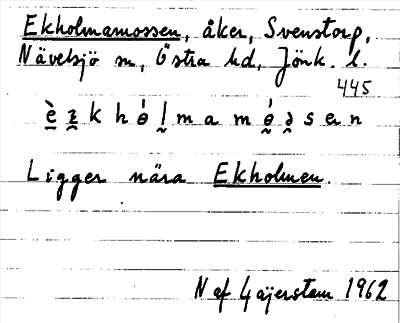 Ekholmamossen, åker, Svenstorp,
Nävelsjö sn, Östra hd, Jönk. l.
445
Ligger nära Ekholmen.
N af Gajerstam 1962